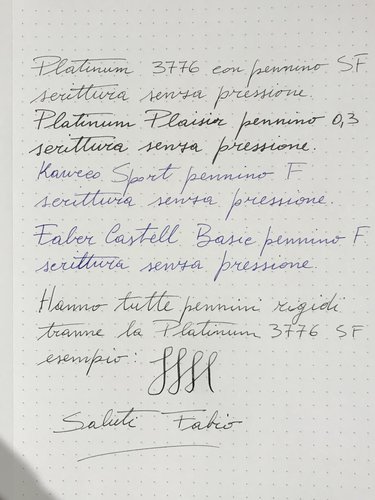 Platinum 3776 con pennino SF
scrittura senza pressione.
Platinum Plaisir pennino 0,3
scrittura senza pressione.
Kaweco Sport pennino F
scrittura senza pressione.
Faber Castell Basic pennino F
scrittura senza pressione.
Hanno tutte pennini rigidi
tranne la Platinum 3776 SF
esempio:
Saluti Fabio